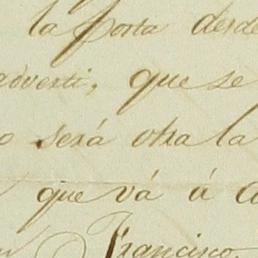 la posta desde
adverti, que se
o será otra la
que vá á
Francisco